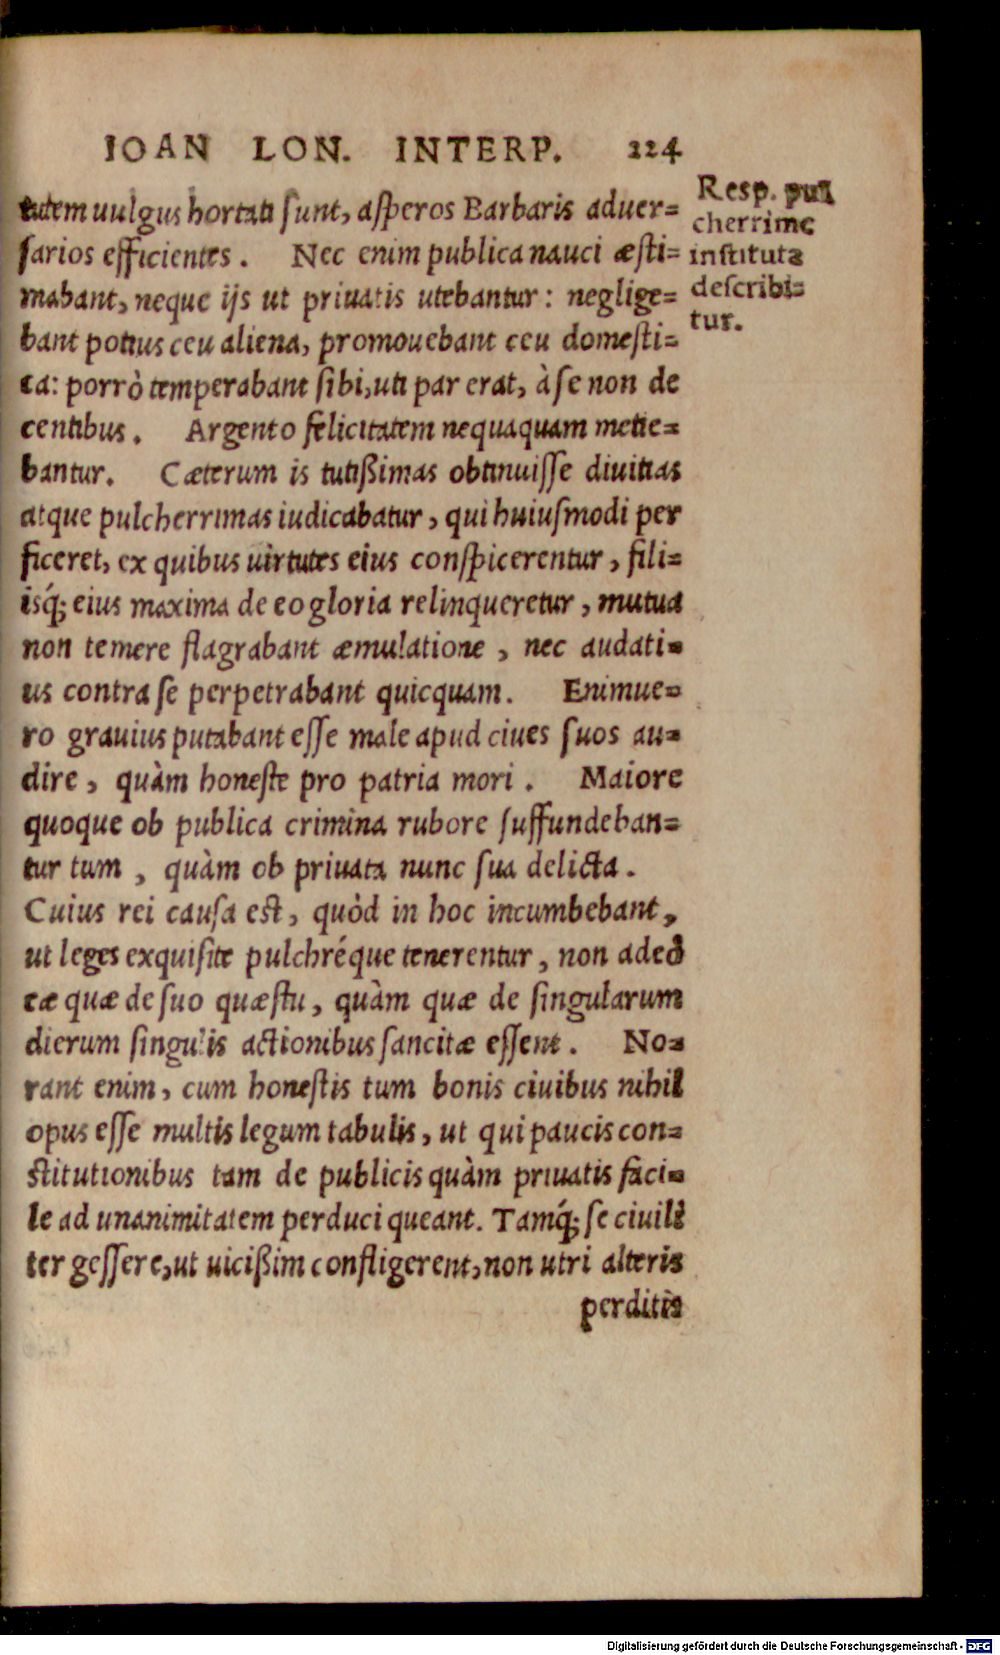 IOAN LON. INTERP. 224
tutem uulgus hortati ſunt, aſperos Barbaris aduer=
ſarios efficientes. Nec enim publica nauci æſti=
mabant, neque ijs ut priuatis utebantur: neglige=
bant potius ceu aliena, promouebant ceu domeſti=
ca: porrò temperabant ſibi, uti par erat, à ſe non de
centibus. Argento felicitatem nequaquam metie=
bantur. Cæterum is tutißimas obtinuiſſe diuitias
atque pulcherrimas iudicabatur, qui huiuſmodi per
ficeret, ex quibus uirtutes eius conſpicerentur, fili=
isq́; eius maxima de eo gloria relinqueretur, mutua
non temere flagrabant æmulatione, nec audati=
us contra ſe perpetrabant quicquam. Enimue=
ro grauius putabant eſſe male apud ciues ſuos au=
dire, quàm honeſte pro patria mori. Maiore
quoque ob publica crimina rubore ſuffundeban=
tur tum, quàm ob priuata nunc ſua delicta.
Cuius rei cauſa eſt, quòd in hoc incumbebant,
ut leges exquiſite pulchréque tenerentur, non adeò
eæ quæ de ſuo quæſtu, quàm quæ de ſingularum
dierum ſingulis actionibus ſancitæ eſſent. No=
rant enim, cum honeſtis tum bonis ciuibus nihil
opus eſſe multis legum tabulis, ut qui paucis con=
ſtitutionibus tam de publicis quàm priuatis faci=
le ad unanimitatem perduci queant. Tamq́; ſe ciuili
ter geſſere, ut uicißim confligerent, non utri alteris
perditis
Resp. pul
cherrime
inſtituta
deſcribi=
tur.
Digitalisierung gefördert durch die Deutsche Forschungsgemeinschaft - DFG